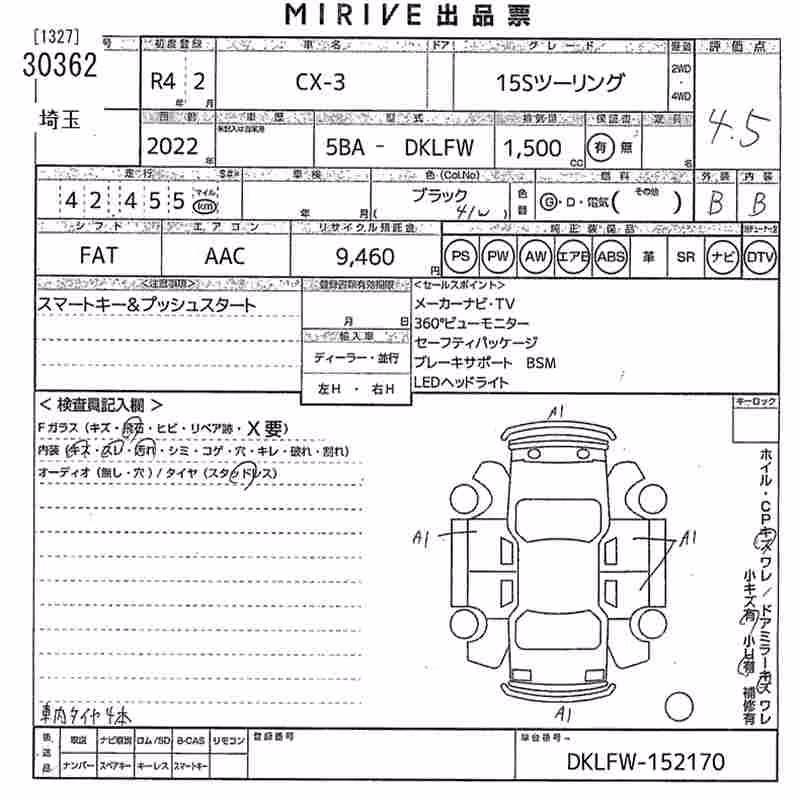 MIRIVE 出品票
[1327] 号 初度登録 車名 ドア グレード 評価点
30362 R4 2 CX-3 15Sツーリング 2WD・4WD 4.5
年 月
埼玉 車歴 型式 排気量 保証書 定員
2022 年 5BA - DKLFW 1,500 cc 有 無 名
走行 車検 色(Col.No) 燃料 外装 内装
42,455 マイル km 年 月 ブラック ( 41W ) 色替 G・D・電気( その他 ) B B
シフト エアコン リサイクル預託金 純正装備品
FAT AAC 9,460 円 PS PW AW エアB ABS 革 SR ナビ DTV
<注意事項> 登録書類有効期限 <セールスポイント>
スマートキー&プッシュスタート メーカーナビ・TV
月 日 360°ビューモニター
輸入車 セーフティパッケージ
ディーラー・並行 ブレーキサポート BSM
左H ・ 右H LEDヘッドライト
< 検査員記入欄 > キーロック
Fガラス (キズ・飛石・ヒビ・リペア跡・X要)
内装 (キズ・スレ・汚れ・シミ・コゲ・穴・キレ・破れ・割れ)
オーディオ (無し・穴) / タイヤ (スタッドレス)
A1
A1
A1
A1
ホイル・CPキズワレ/ドアミラーキズワレ
小キズ有 小凹有 補修有
車内タイヤ4本
後送品 取説 ナビ取説 ロム/SD B-CAS リモコン 登録番号 車台番号
ナンバー スペアキー キーレス スマートキー DKLFW-152170